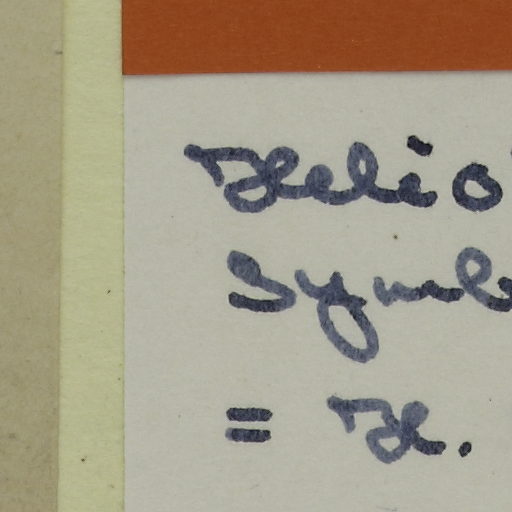 Helio
Symb
= H.